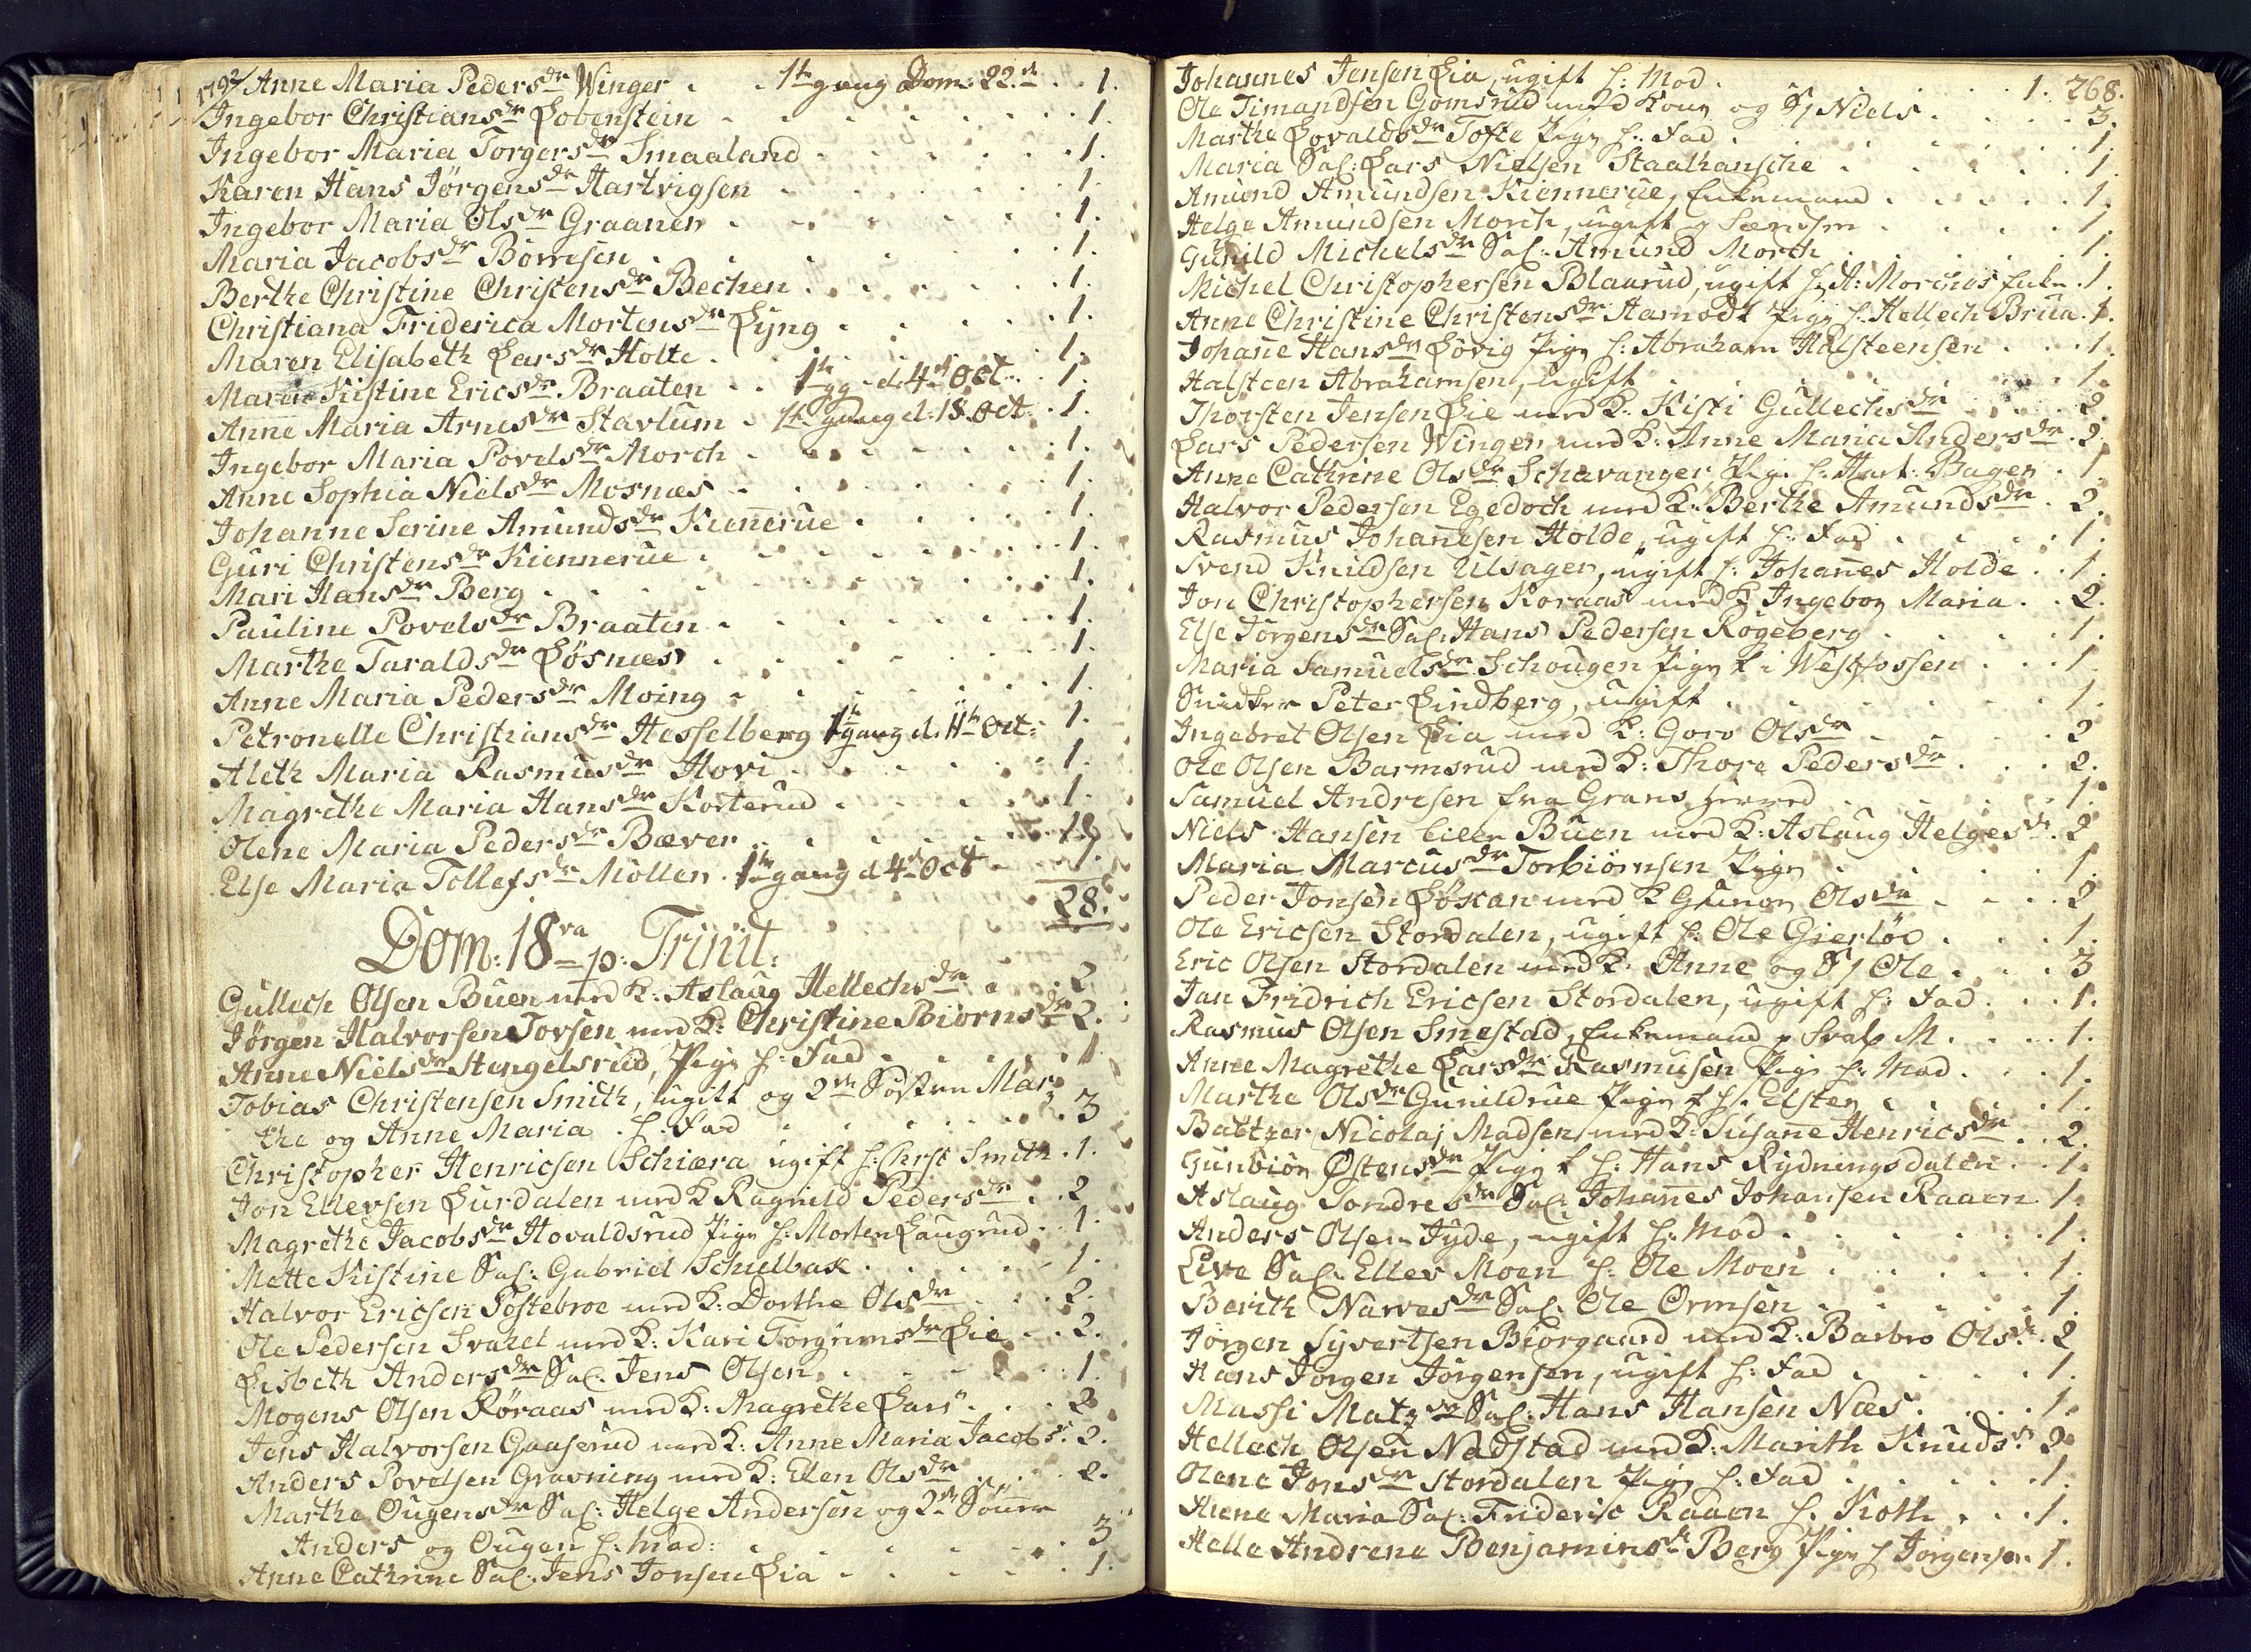 1792/ Anne Maria Pedersdr Winger . . 1te gang Dom: 22de . . 1.
Ingebor Christiansdr Lobenstein . . . 1.
Ingebor Maria Torgersdr Smaaland . . . 1.
Karen Hans Jørgensdr Hartvigsen . . . 1.
Ingebor Maria Olsdr Graanen . . . 1.
Maria Jacobsdr Børresen . . . 1.
Berthe Christine Christensdr Bechen . . . 1.
Christiana Friderica Mortensdr Lyng . . . 1.
Maren Elisabeth Larsdr Holte . . . 1.
Maren Kistine Ericsdr Braaten . . 1te gg d: 4de Oct . . 1.
Anne Maria Arnesdr Stavlum . 1te gang d: 18 Oct . 1.
Ingebor Maria Povelsdr Morch . . . 1.
Anne Sophia Nielsdr Mosnæs . . . 1.
Johanne Serine Amundsdr Kiennerue . . . 1.
Guri Christensdr Kiennerue . . . 1.
Mari Hansdr Berg . . . 1.
Pauline Povelsdr Braaten . . . 1.
Marthe Taraldsdr Løsnæs . . . 1.
Anne Maria Pedersdr Moing . . . 1.
Petronelle Christiansdr Hesselberg 1te gang d. 11te Oct: 1.
Aleth Maria Rasmusdr Hovi . . . 1.
Magrethe Maria Hansdr Korterud . . . 1.
Olene Maria Pedersdr Bæver . . . 1.
Else Maria Tollefsdr Møllen . 1te gang d 4de Oct . 1.
28.
Dom: 18va p: Trinit:
Gullech Olsen Buen med K: Aslaug Hellechsdr . . 2
Jørgen Halvorsen Tovsen med K: Christine Biørnsdr 2.
Anne Nielsdr Stengelsrud, Pige h: Fad . . . 1
Tobias Christensen Smith, ugift og 2de Søstre Mar-
the og Anne Maria . h: Fad . . . 3
Christopher Henricsen Schiæra ugift h: Chrst Smith . 1.
Jon Ellevsen Lurdalen med K Ragnild Pedersdr . . 2
Magrethe Jacobsdr Hovaldsrud Pige h: Morten Laugrud . 1.
Mette Kistine Sal: Gabriel Schielbak . . . 1.
Halvor Ericsen Fostebroe med K: Dorthe Olsdr . . 2.
Ole Pedersen Svahel med K: Kari Torgrimsdr Lie . . 2.
Lisbeth Andersdr Sal: Jens Olsen . . . 1
Mogens Olsen Røraas med K: Magrethe Lars" . . 2
Jens Halvorsen Gaaserud med K: Anne Maria Jacobs: 2.
Anders Povelsen Gravning med K: Elen Olsdr . . 2.
Marthe Ougensdr Sal: Helge Andersen og 2de Sønner
Anders og Ougen h: Mod: . . . 3
Anne Cathrine Sal: Jens Jonsen Lia . . . 1.
268.
Johannes Jensen Lia, ugift h: Mod . . . 1.
Ole Timandsen Gomsrud med Kone og S/ Niels . . . 3.
Marthe Lovaldsdr Tofte Pige h: Fad . . . 1.
Maria Sal: Lars Nielsen Staalhansche . . . 1
Amund Amundsen Kiennerue, Enkemand . . . 1.
Helge Amundsen Morch, ugift . . . 1
Gunild Michelsdr Sal: Amund Morch . . . 1.
Michel Christophersen Blaarud, ugift h A: Morches Enke . 1.
Anne Christine Christensdr Hamodt Pige h: Hellech Brua . 1.
Johane Hansdr Løvig Pige h: Abraham Halsteensen . . 1.
Halsteen Abrahamsen, ugift . . . 1.
Thorsten Jensen Lie med K: Kisti Gullechsdr . . . 2.
Lars Pedersen Wingen med K: Anne Maria Andersdr . 2.
Anne Cathrine Olsdr Schavanger, Pige h: Hart: Bagen . 1.
Halvor Pedersen Egedoch med K: Berthe Amundsdr . 2.
Rasmus Johanesen Holde, ugift h: Fad . . . 1.
Svend Knudsen Ulsager, ugift h: Johannes Holde . . 1.
Jon Christophersen Koraas med K Ingebor Maria . . 2.
Else Jørgensdr Sal: Hans Pedersen Røgeberg . . . 1.
Maria Samuelsdr Schougen Pige t i Westfossen . . . 1.
Snidker Peter Lindberg, ugift . . . 1.
Ingebret Olsen Lia med K: Goro Olsdr . . . 2
Ole Olsen Barmsrud med K: Thore Pedersdr . . . 2.
Samuel Andresen fra Grans Herred . . . 1.
Niels Hansen Buen med K: Aslaug Helgesdr . 2
Maria Marcusdr Torbiørnsen Pige . . . 1.
Peder Jonsen Løkan med K Gunor Olsdr . . . 2
Ole Ericsen Stordalen, ugift h: Ole Gierløs . . . 1.
Eric Olsen Stordalen med K: Anne og S/ Ole . . . 3
Jan Fridrich Ericsen Stordalen, ugift h: Fad . . . 1.
Rasmus Olsen Smestad, Enkemand M . . . 1.
Anne Magrethe Larsdr Rasmusen Pige h: Mod . . 1.
Marthe Olsdr Gunildrue Pige t h: Elsten . . . 1.
Baltzer Nicolaj Madsen med K: Susane Henricsdr . . 2.
Gunbiør Østensdr Pige t h: Hans Rydningsdalen . . 1.
Aslaug Sondresdr Sal: Johanes Johansen Raaen 1.
Anders Olsen Fyde, ugift h: Mod . . . 1.
Live Sal: Ellev Moen h: Ole Moen . . . 1.
Berith Narvesdr Sal: Ole Ormsen . . . 1.
Jørgen Syvertsen Biørgaard med K: Barbro Olsdr . 2
Hans Jørgen Jørgensen, ugift h: Fad . . . 1.
Massi Matzdr Sal: Hans Hansen Næs . . . 1.
Hellech Olsen Nadstad med K: Marith Knudsdr 2
Olene Jonsdr Stordalen Pige h: Fad . . . 1.
Anne Maria Sal: Frideric Raaen h: Koth . . . 1.
Helle Andrene Benjaminsdr Berg Pige h Jorgensen 1.